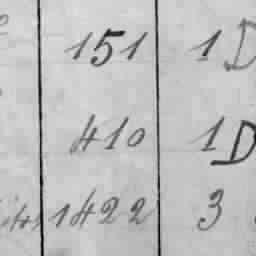 151 1D
410 1D
1422 3